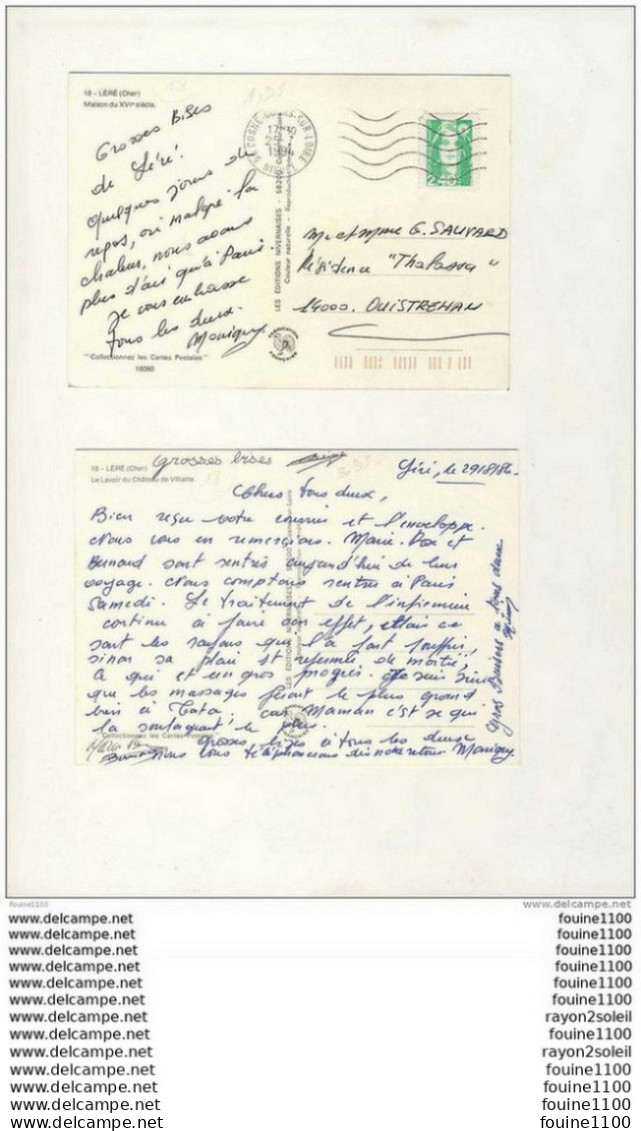 18 - LÉRÉ (Cher)
Maison du XVIe siècle.
Grosses Bises
de Léré!
quelques jours de
repos, où malgré la
chaleur, nous avons
plus d'air qu'à Paris
je vous embrasse
tous les deux.
Moniquy
"Collectionnez les Cartes Postales"
18080
LES ÉDITIONS NIVERNAISES - 58200
Couleur naturelle - Reproduction
58 COSNE-COURS-SUR-LOIRE
17H30
1994
NIEVRE
M. et Mme G. SAUVARD
Résidence "Thalassa"
14000. OUISTREHAN
18 - LÉRÉ (Cher)
Le Lavoir du Château de Villatte.
Grosses bises
Léré, le 29/8/86
Chers tous deux,
Bien reçu votre courrier et l'enveloppe.
Nous vous en remercions. Marie-Rose et
Bernard sont rentrés aujourd'hui de leur
voyage. Nous comptons rentrer à Paris
Samedi. Le traitement de l'infirmière
continue à faire son effet, mais ce
sont les rayons qui l'a fait souffrir,
sinon sa plaie est refermée de moitié,
ce qui est un gros progrès. Je suis sûre
que les massages feront le plus grand
bien à Tata, car Maman c'est ce qui
la soulageait le plus.
Grosses bises à tous les deux
nous vous téléphonerons dès notre retour Moniquy.
Gros Baisers à tous deux
"Collectionnez les Cartes Postales"
LES ÉDITIONS NIVERNAISES
fouine1100
www.delcampe.net
www.delcampe.net fouine1100
www.delcampe.net fouine1100
www.delcampe.net fouine1100
www.delcampe.net fouine1100
www.delcampe.net fouine1100
www.delcampe.net fouine1100
www.delcampe.net rayon2soleil
www.delcampe.net fouine1100
www.delcampe.net rayon2soleil
www.delcampe.net fouine1100
www.delcampe.net fouine1100
www.delcampe.net fouine1100
www.delcampe.net fouine1100